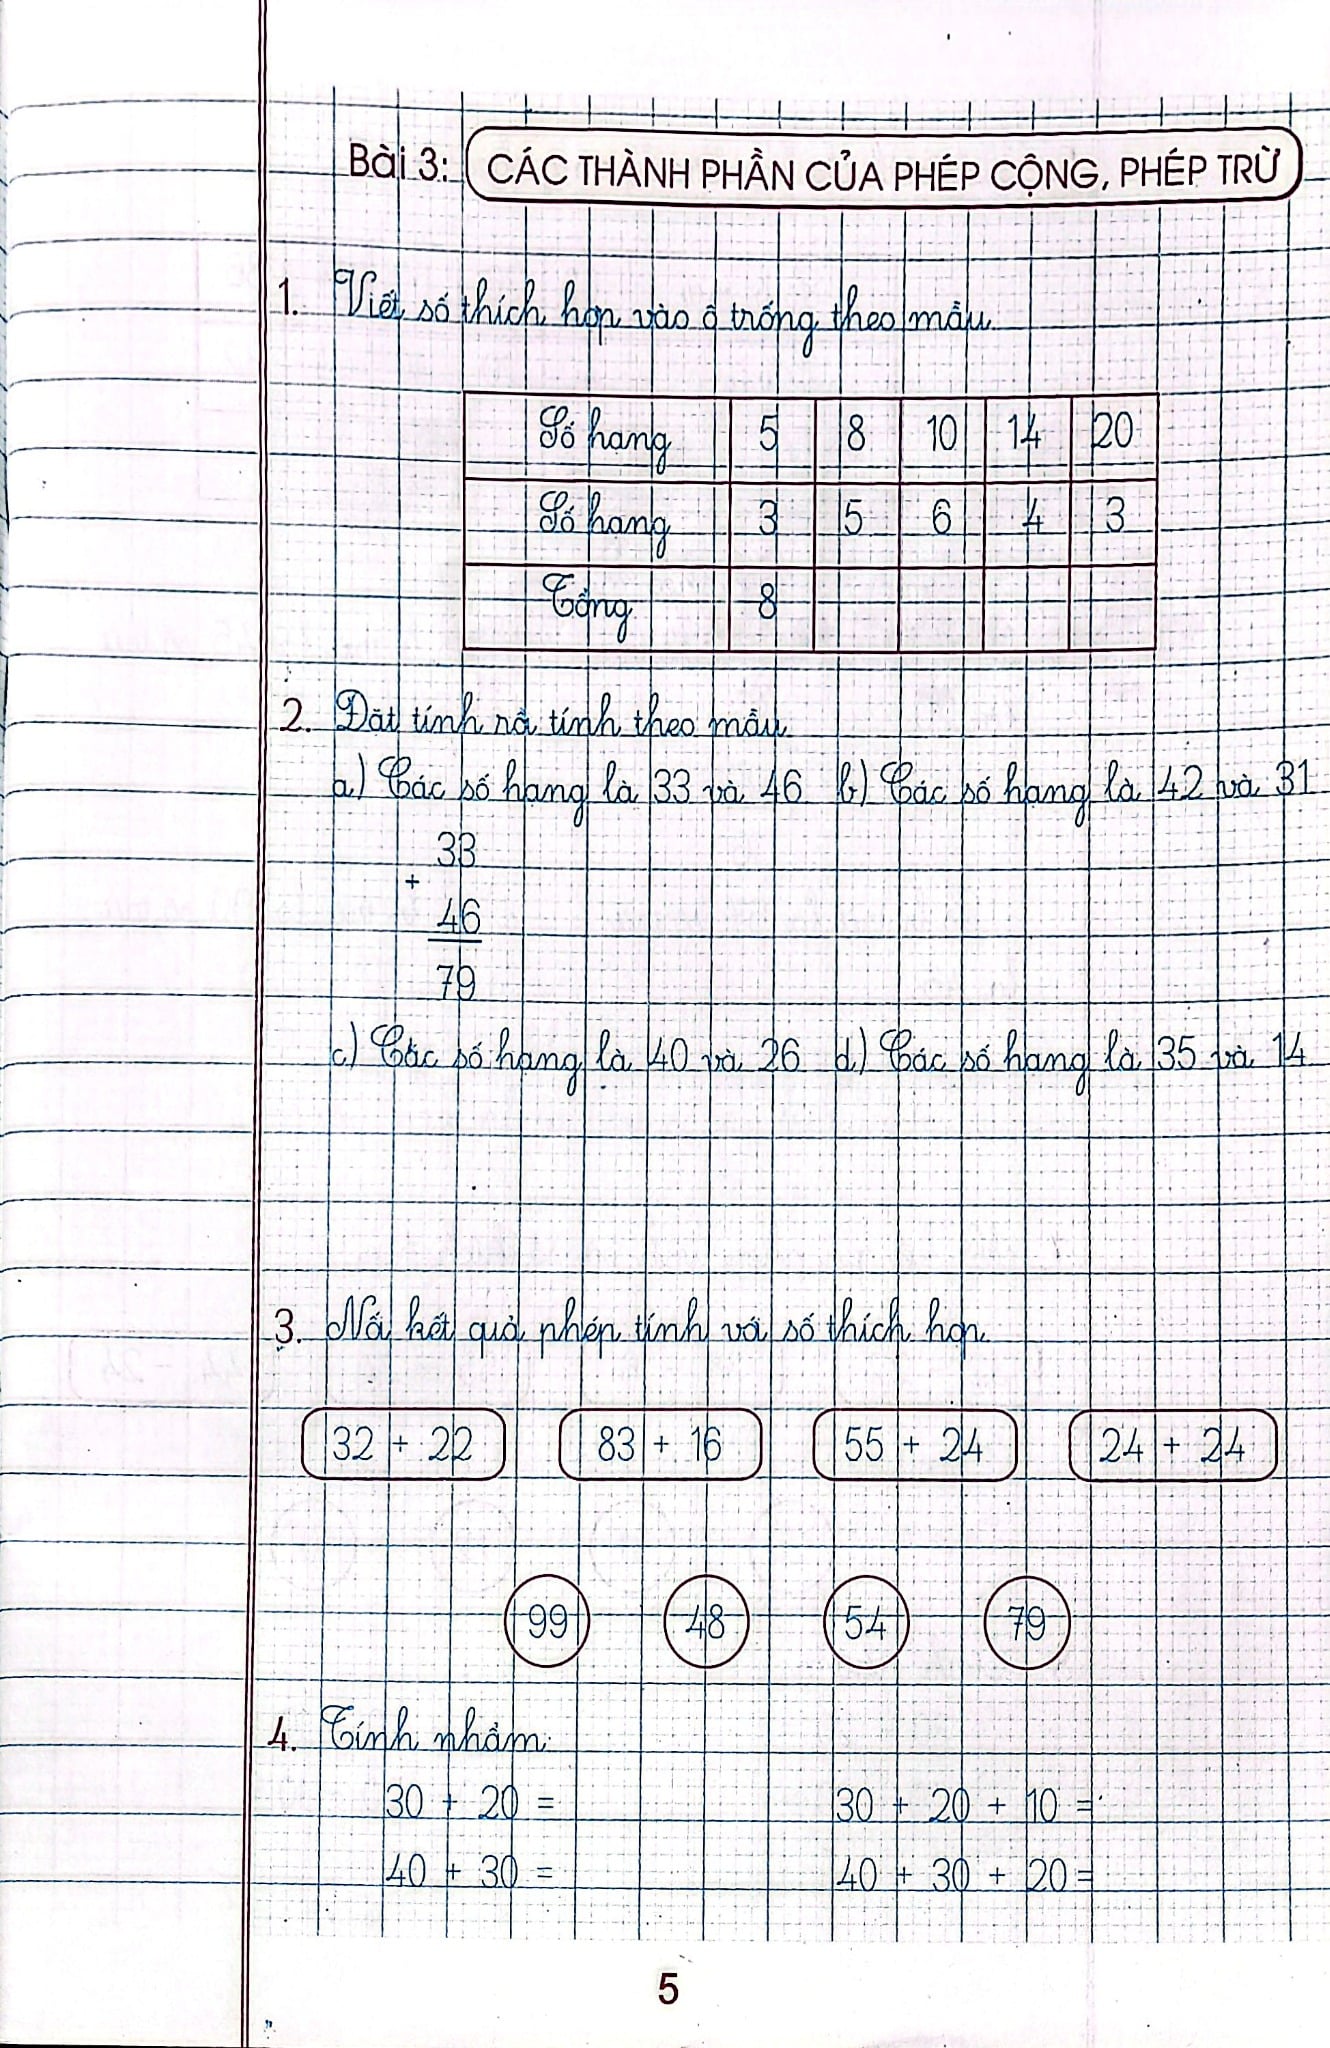 Bài 3: CÁC THÀNH PHẦN CỦA PHÉP CỘNG, PHÉP TRỪ
1. Viết số thích hợp vào ô trống theo mẫu.
Số hạng 5 8 10 14 20
Số hạng 3 5 6 4 3
Tổng 8
2. Đặt tính rồi tính theo mẫu
a) Các số hạng là 33 và 46 b) Các số hạng là 42 và 31
33
+
46
79
c) Các số hạng là 40 và 26 d) Các số hạng là 35 và 14
3. Nối kết quả phép tính với số thích hợp.
32 + 22 83 + 16 55 + 24 24 + 24
99 48 54 79
4. Tính nhẩm.
30 + 20 = 30 + 20 + 10 =
40 + 30 = 40 + 30 + 20 =
5